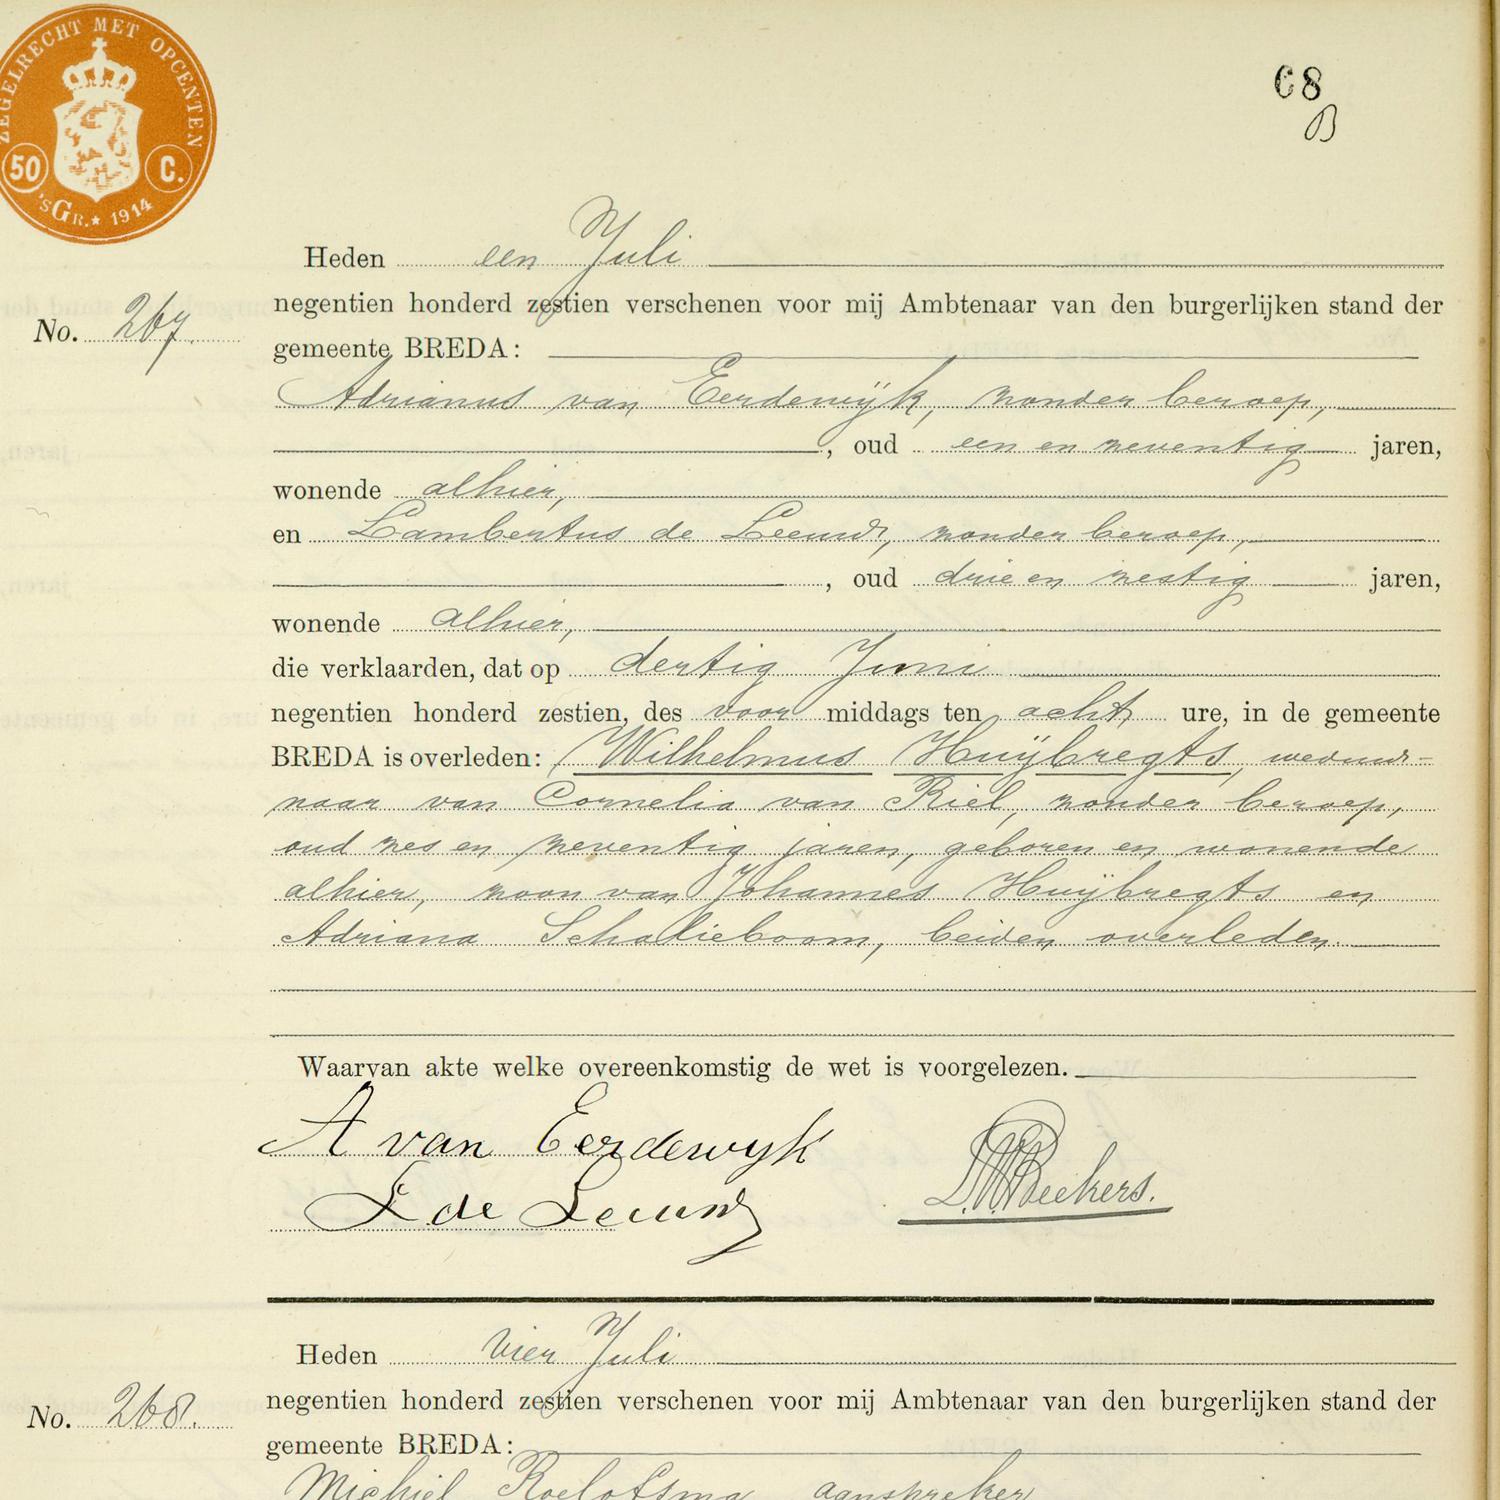 ZEGELRECHT MET OPCENTEN
50 C.
'sGR.* 1914
68
B
Heden een Juli
negentien honderd zestien verschenen voor mij Ambtenaar van den burgerlijken stand der
No. 267.
gemeente BREDA:
Adrianus van Eerdewijk, zonder beroep,
, oud een en zeventig jaren,
wonende alhier,
en Lambertus de Leeuw, zonder beroep,
, oud drie en zestig jaren,
wonende alhier,
die verklaarden, dat op dertig Juni
negentien honderd zestien, des voor middags ten acht ure, in de gemeente
BREDA is overleden: Wilhelmus Huijbregts, weduw-
naar van Cornelia van Riel, zonder beroep,
oud zes en zeventig jaren, geboren en wonende
alhier, zoon van Johannes Huijbregts en
Adriana Schalieboom, beiden overleden.
Waarvan akte welke overeenkomstig de wet is voorgelezen.
A van Eerdewyk
L de Leeuw
Beckers.
Heden vier Juli
No. 268.
negentien honderd zestien verschenen voor mij Ambtenaar van den burgerlijken stand der
gemeente BREDA:
Michiel Roelofsma aanspreker